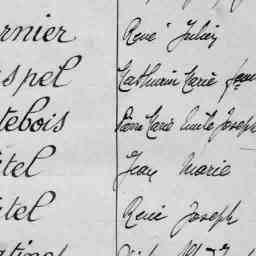 rnier René Julien
spel Mathurin Marie Jean
tebois Pierre Marie Emile Joseph
itel Jean Marie
itel René Joseph